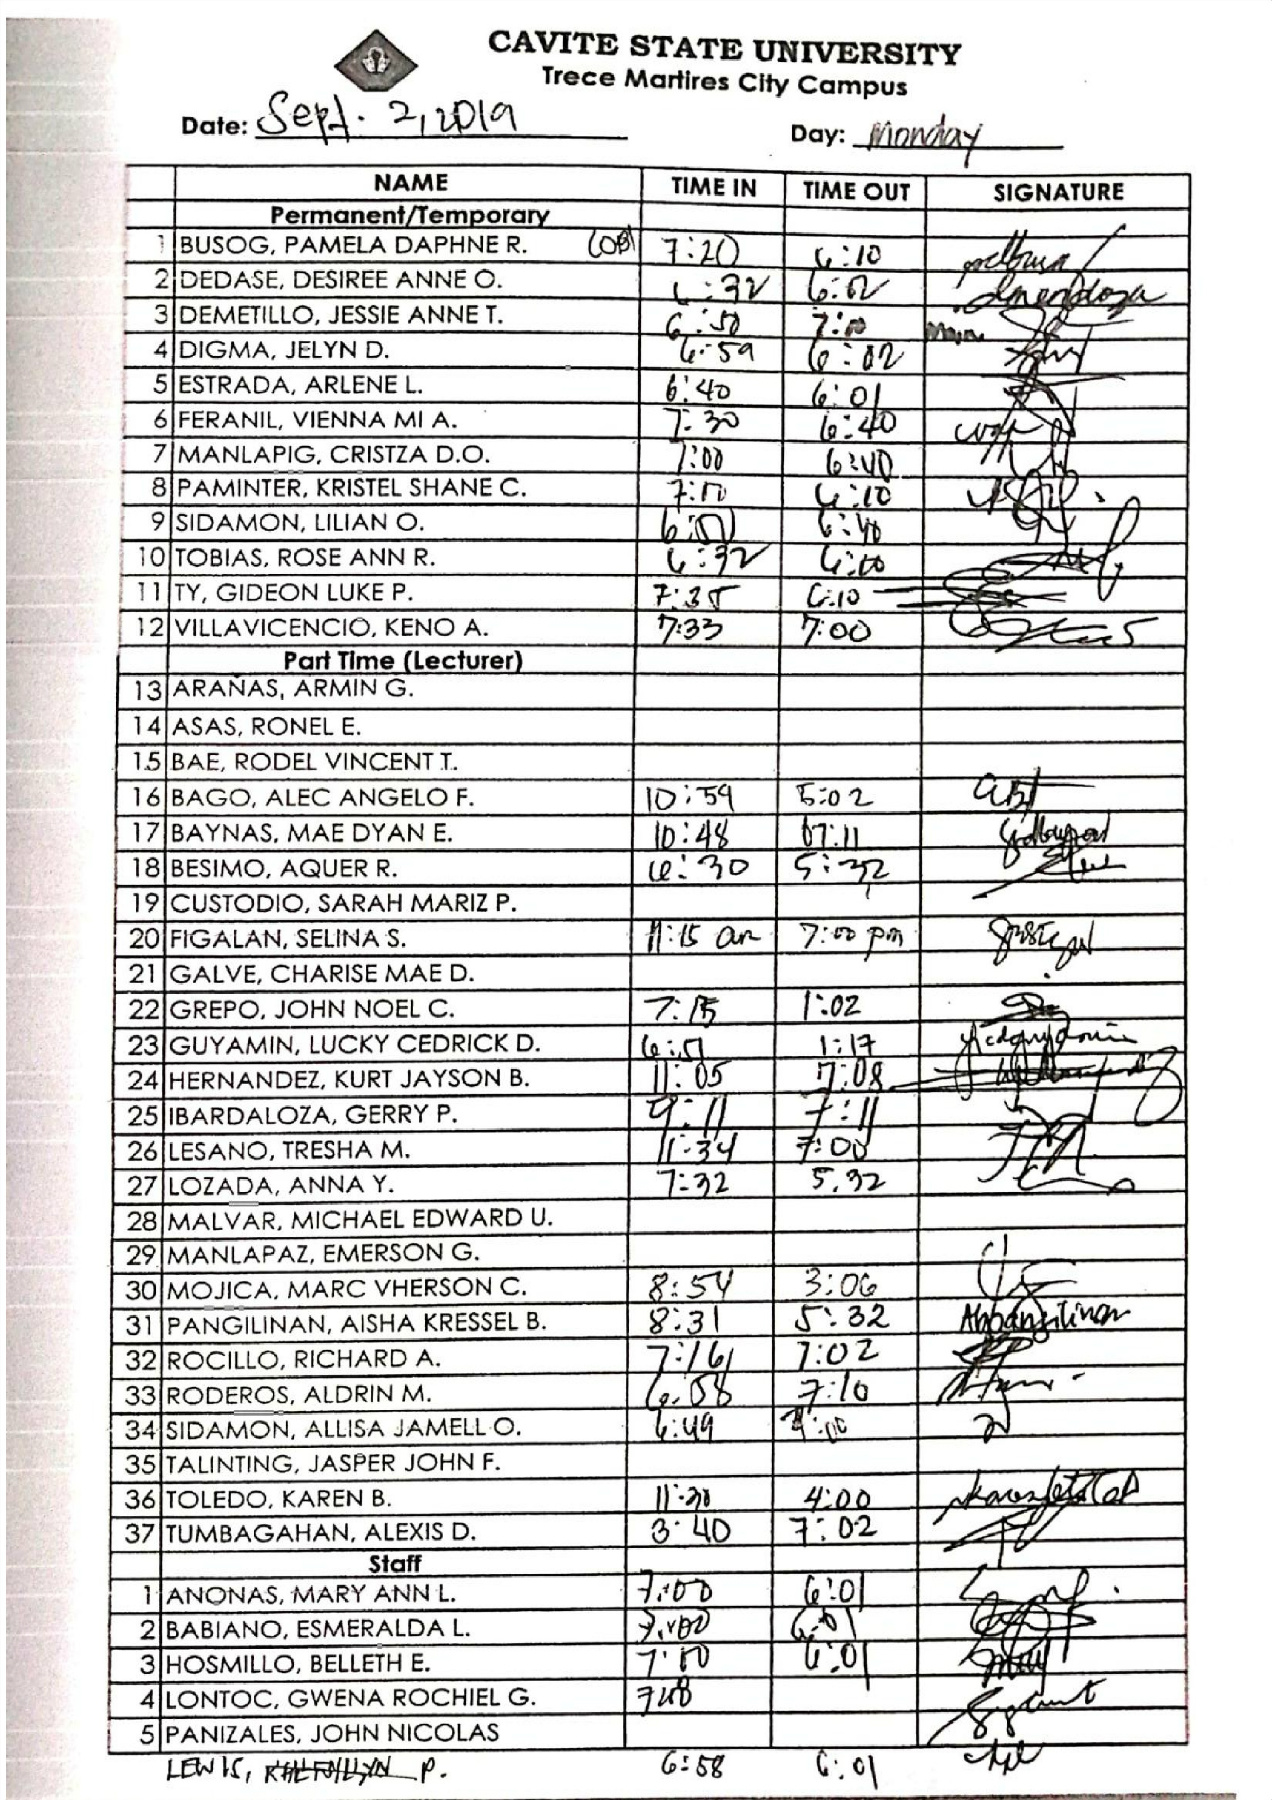 CAVITE STATE UNIVERSITY
Trece Martires City Campus
Date: Sept. 2, 2019 Day: Monday
NAME TIME IN TIME OUT SIGNATURE
Permanent/Temporary
1 BUSOG, PAMELA DAPHNE R. (OB) 7:20 6:10
2 DEDASE, DESIREE ANNE O. 6:32 6:02
3 DEMETILLO, JESSIE ANNE T. 6:50 7:00
4 DIGMA, JELYN D. 6:59 6:02
5 ESTRADA, ARLENE L. 6:40 6:01
6 FERANIL, VIENNA MI A. 7:30 6:40
7 MANLAPIG, CRISTZA D.O. 7:00 6:40
8 PAMINTER, KRISTEL SHANE C. 6:10
9 SIDAMON, LILIAN O. 6:40
10 TOBIAS, ROSE ANN R. 6:32 6:00
11 TY, GIDEON LUKE P. 7:35 6:10
12 VILLAVICENCIO, KENO A. 7:33 7:00
Part Time (Lecturer)
13 ARAÑAS, ARMIN G.
14 ASAS, RONEL E.
15 BAE, RODEL VINCENT T.
16 BAGO, ALEC ANGELO F. 10:59 5:02
17 BAYNAS, MAE DYAN E. 10:48 07:11
18 BESIMO, AQUER R. 6:30 5:32
19 CUSTODIO, SARAH MARIZ P.
20 FIGALAN, SELINA S. 11:15 am 7:00 pm
21 GALVE, CHARISE MAE D.
22 GREPO, JOHN NOEL C. 7:15 1:02
23 GUYAMIN, LUCKY CEDRICK D. 6:51 1:17
24 HERNANDEZ, KURT JAYSON B. 11:05 7:08
25 IBARDALOZA, GERRY P. 9:11 7:11
26 LESANO, TRESHA M. 11:34 7:00
27 LOZADA, ANNA Y. 7:32 5:32
28 MALVAR, MICHAEL EDWARD U.
29 MANLAPAZ, EMERSON G.
30 MOJICA, MARC VHERSON C. 8:54 3:06
31 PANGILINAN, AISHA KRESSEL B. 8:31 5:32 Abpangilinan
32 ROCILLO, RICHARD A. 7:16 7:02
33 RODEROS, ALDRIN M. 6:58 7:10
34 SIDAMON, ALLISA JAMELL O. 6:49 7:00
35 TALINTING, JASPER JOHN F.
36 TOLEDO, KAREN B. 11:30 4:00
37 TUMBAGAHAN, ALEXIS D. 3:40 7:02
Staff
1 ANONAS, MARY ANN L. 7:00 6:01
2 BABIANO, ESMERALDA L. 7:00 6:01
3 HOSMILLO, BELLETH E. 7:00 6:01
4 LONTOC, GWENA ROCHIEL G.
5 PANIZALES, JOHN NICOLAS
LEWIS, P. 6:58 6:01